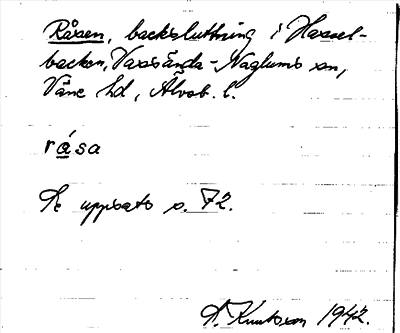 Råsen, backsluttning i Hassel-
backen, Vassända-Naglums sn,
Väne hd, Älvsb. l.
råsa
Se uppsats s. 72.
A. Knutsson 1942.